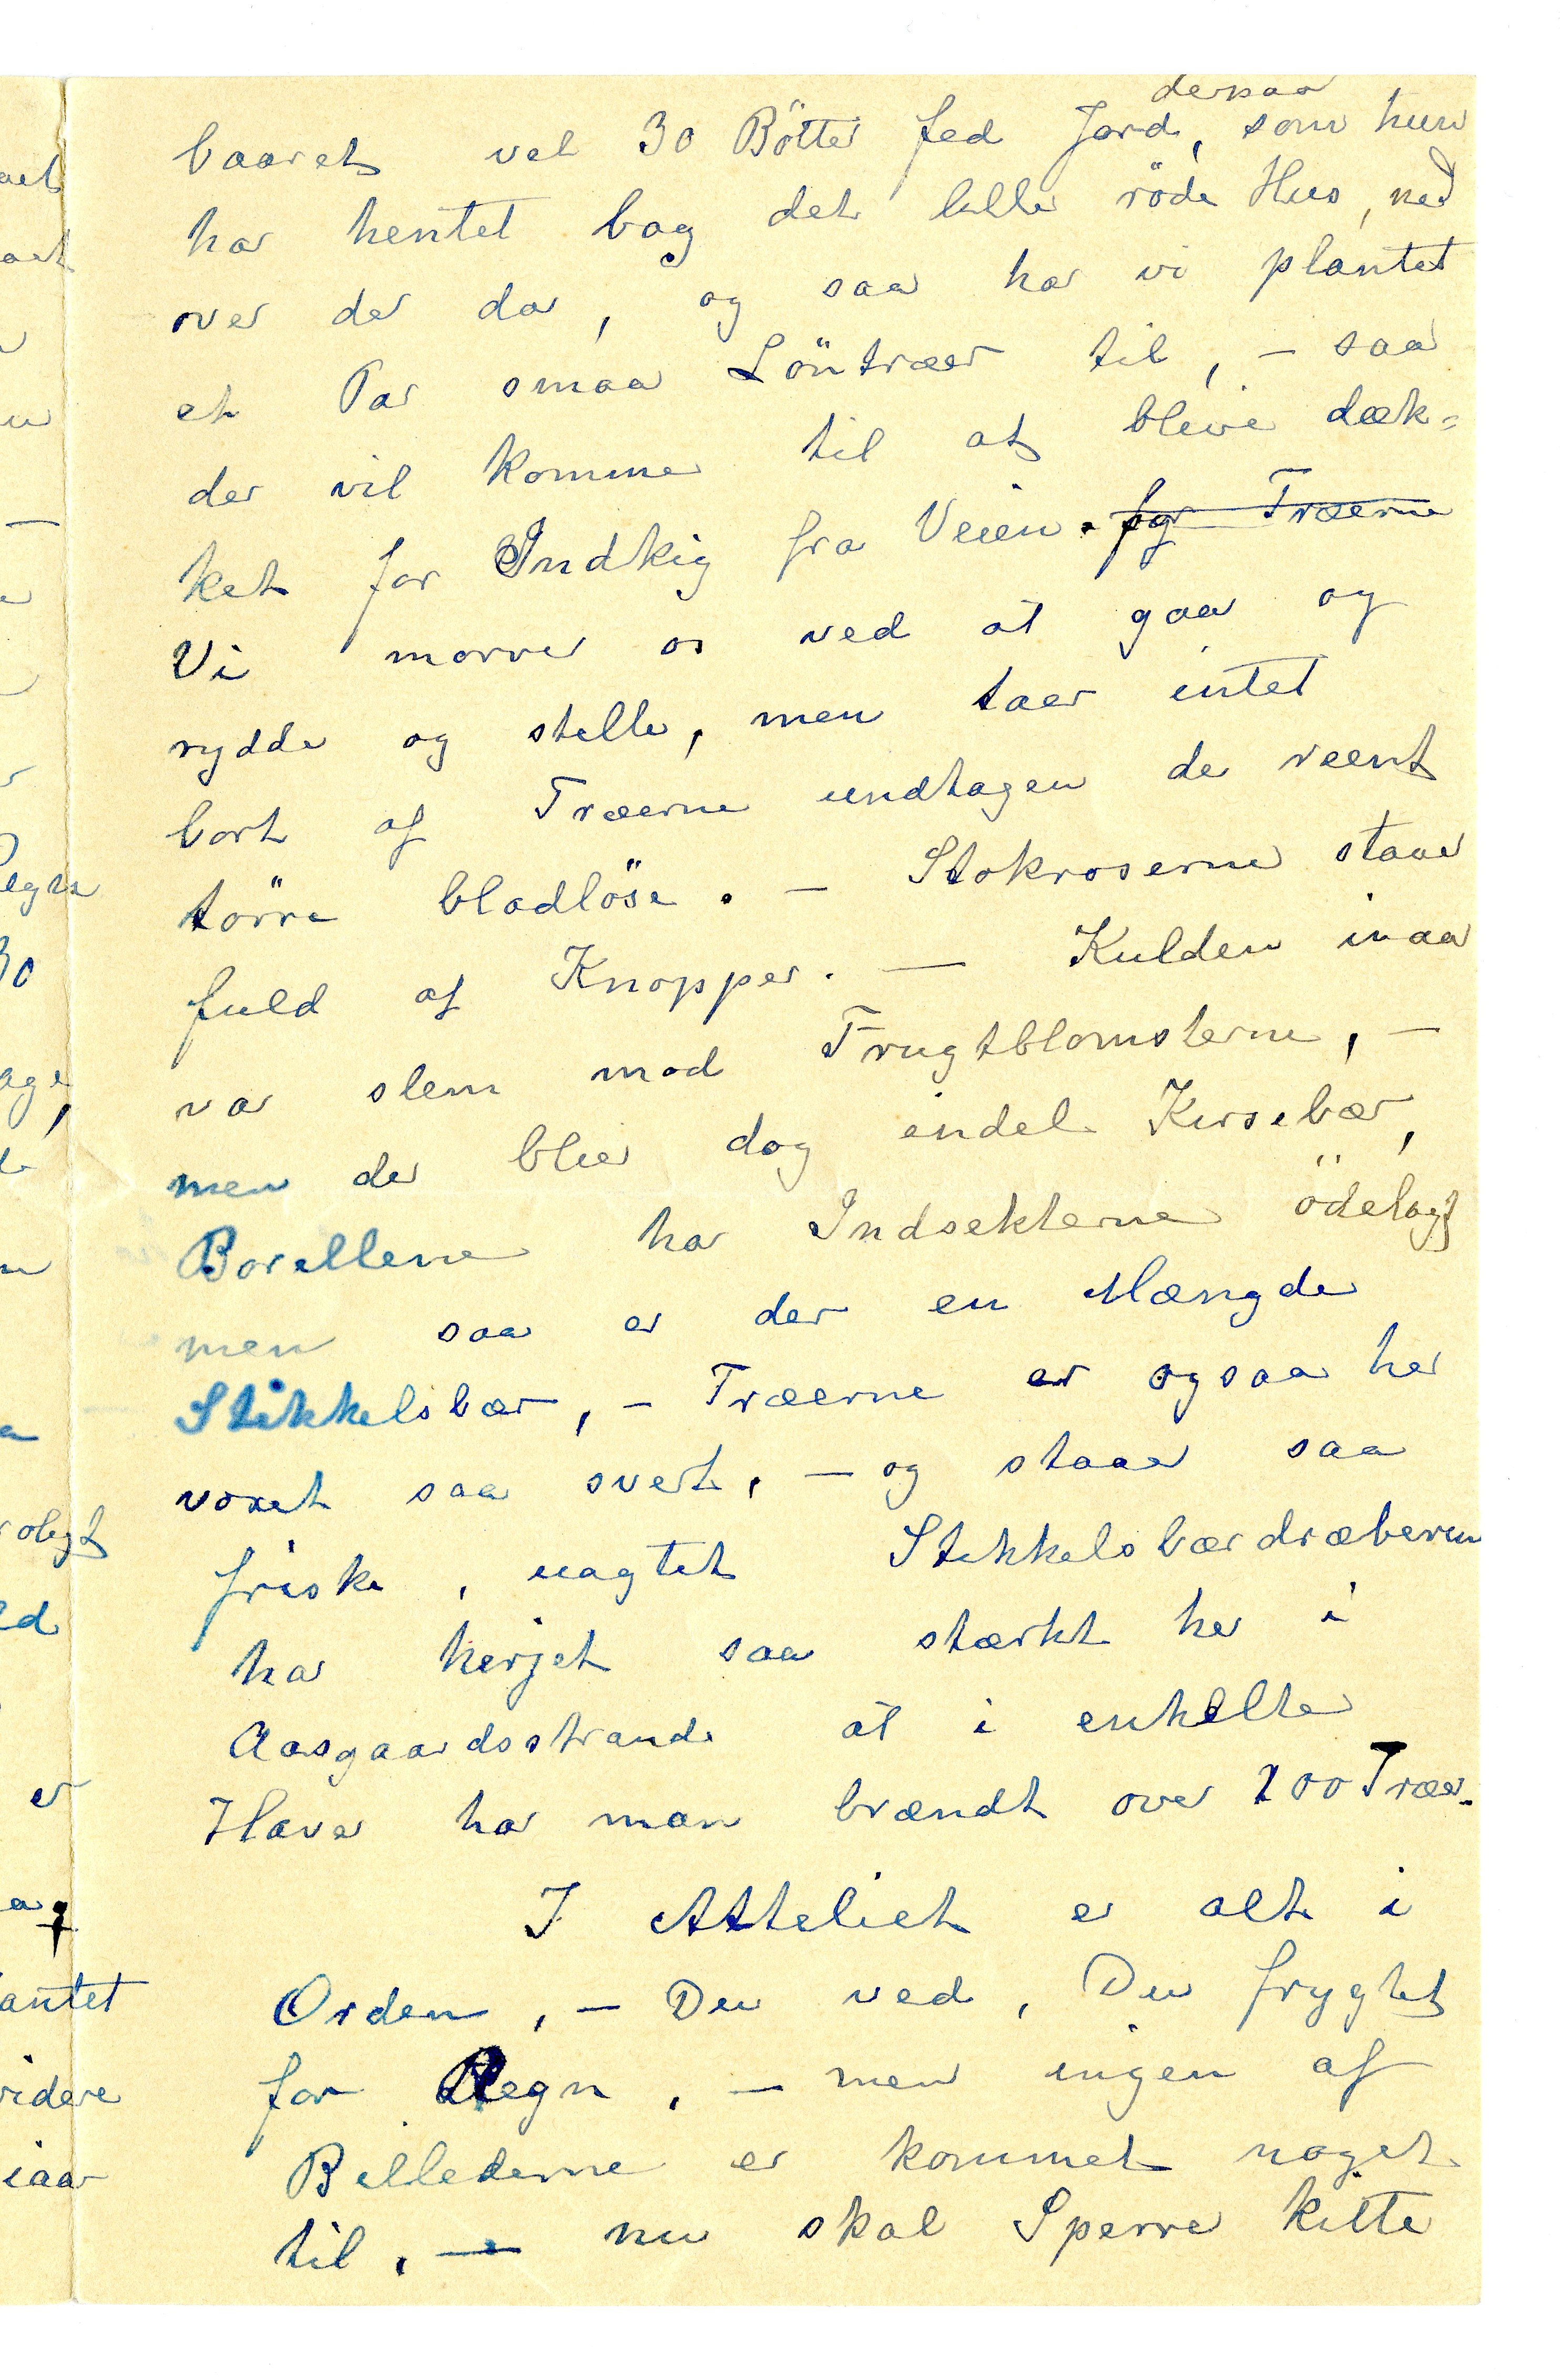 dersaa
baaret vel 30 Bötter fed Jord, som hun
har hentet bag det lille röde Hus, ned
over der da, og saa har vi plantet
et Par smaa Löntræer til, – saa
der vil komme til at blive dæk=
ket for Indkig fra Veien. for Træerne
Vi morrer os ved at gaa og
rydde og stelle, men taer intet
bort af Træerne undtagen de reent
törre bladlöse. – Stokroserne staar
fuld af Knopper. – Kulden iaar
var slem mod Frugtblomsterne, –
men der blier dog endel Kirsebær,
Morellerne har Indsekterne ödelagt
men saa er der en Mængde
Stikkelsbær, – Træerne er ogsaa her
voxet saa svert, – og staaer saa
friske, uagtet Stikkelsbærdræberen
har herjet saa stærkt her i
Aasgaardsstrand at i enkelte
Haver har man brændt over 200 Træer.
I Atteliet er alt i
Orden, – Du ved, Du frygtet
for Regn, – men ingen af
Billederne er kommet noget
til, – nu skal Sperre kitte
aet
aet
u
egn
30
age,
de
roligt
ld
er
antet
videre
iaar